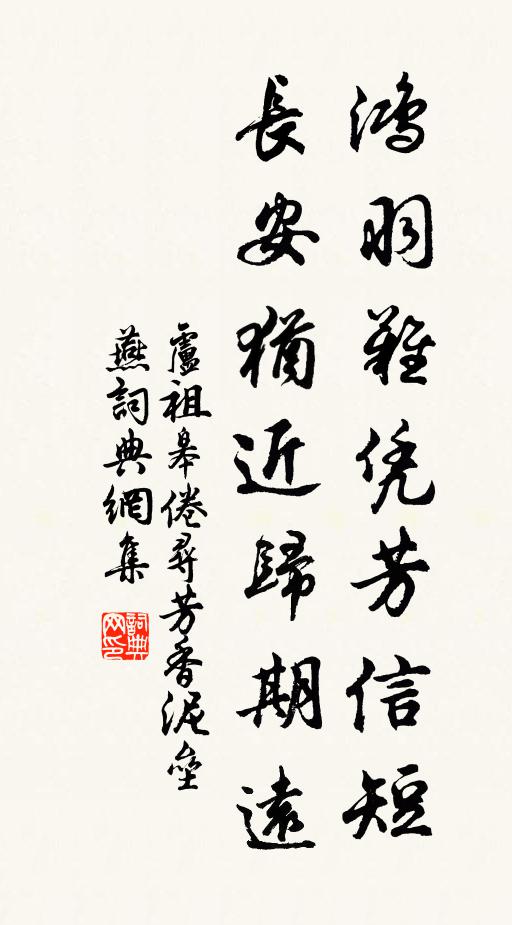 鴻羽難凭芳信短
長安猶近歸期遠
盧祖皋倦尋芳香泥壘
燕詞典網集
詞典
网印